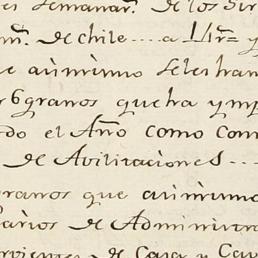 semanar.s de los Sir
de Chile .... a
que asimismo seles han
6 granos que ha ymp
do el Año como con
de Avilitaciones ...
granos que asimismo
arios de Administra
rvientes de Casa y